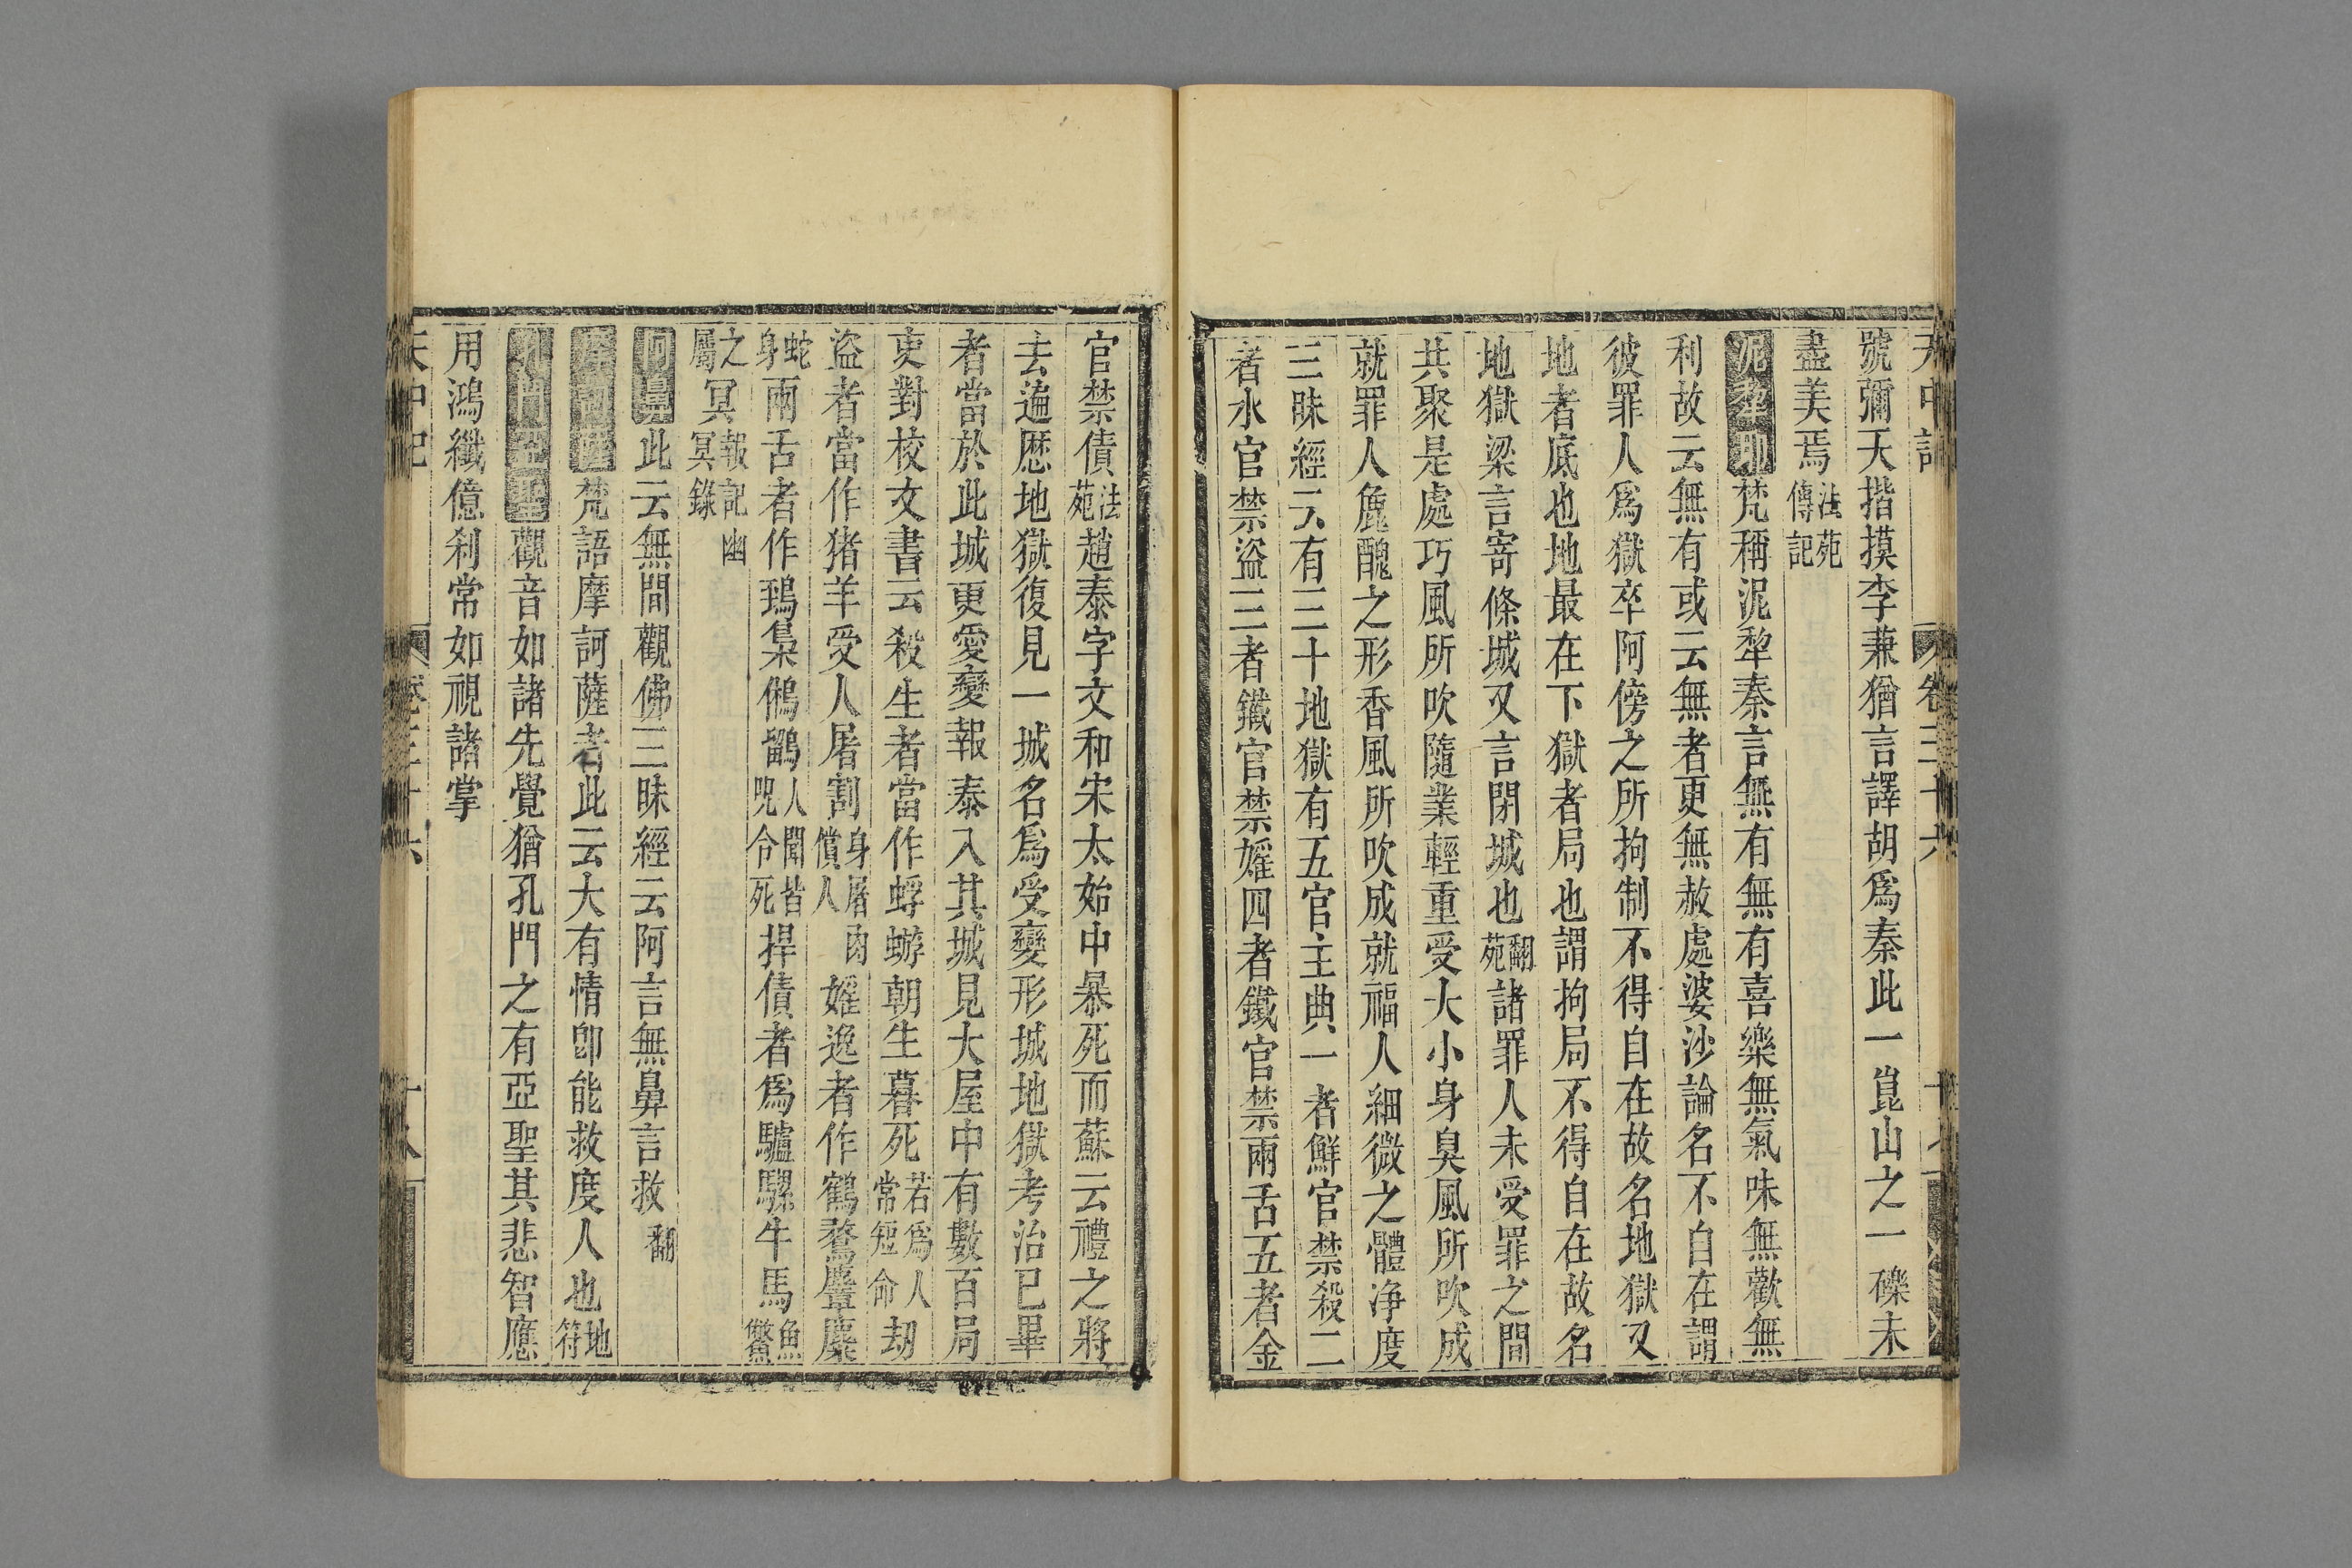 天中記 卷三十六
號彌天揩摸李蒹猶言譯胡爲秦此一崑山之一礫未
盡美焉法苑傳記
泥犂耶梵稱泥犂秦言無有無有喜樂無氣味無歡無
利故云無有或云無者更無赦處婆沙論名不自在謂
彼罪人爲獄卒阿傍之所拘制不得自在故名地獄又
地者底也地最在下獄者局也謂拘局不得自在故名
地獄梁言寄條城又言閉城也翻苑諸罪人未受罪之間
共聚是處巧風所吹隨業輕重受大小身臭風所吹成
就罪人麁醜之形香風所吹成就福人細微之體淨度
三昧經云有三十地獄有五官主典一者鮮官禁殺二
者水官禁盜三者鐵官禁婬四者鐵官禁兩舌五者金
官禁債法苑趙泰字文和宋太始中暴死而蘇云禮之將
去遍歷地獄復見一城名爲受變形城地獄考治已畢
者當於此城更愛變報泰入其城見大屋中有數百局
吏對校文書云殺生者當作蜉蝣朝生暮死若爲人常短命劫
盜者當作猪羊受人屠割身屠肉償人婬逸者作鶴鶩麞麋
蛇身兩舌者作鵄梟鵂鶹人聞皆呪令死捍債者爲驢騾牛馬魚鱉
之屬冥報記冥錄幽
阿鼻此云無間觀佛三昧經云阿言無鼻言救翻
梵語摩訶薩者此云大有情卽能救度人也地符
孔門亞聖觀音如諸先覺猶孔門之有亞聖其悲智應
用鴻纖億刹常如視諸掌
天中記 卷三十六 十八